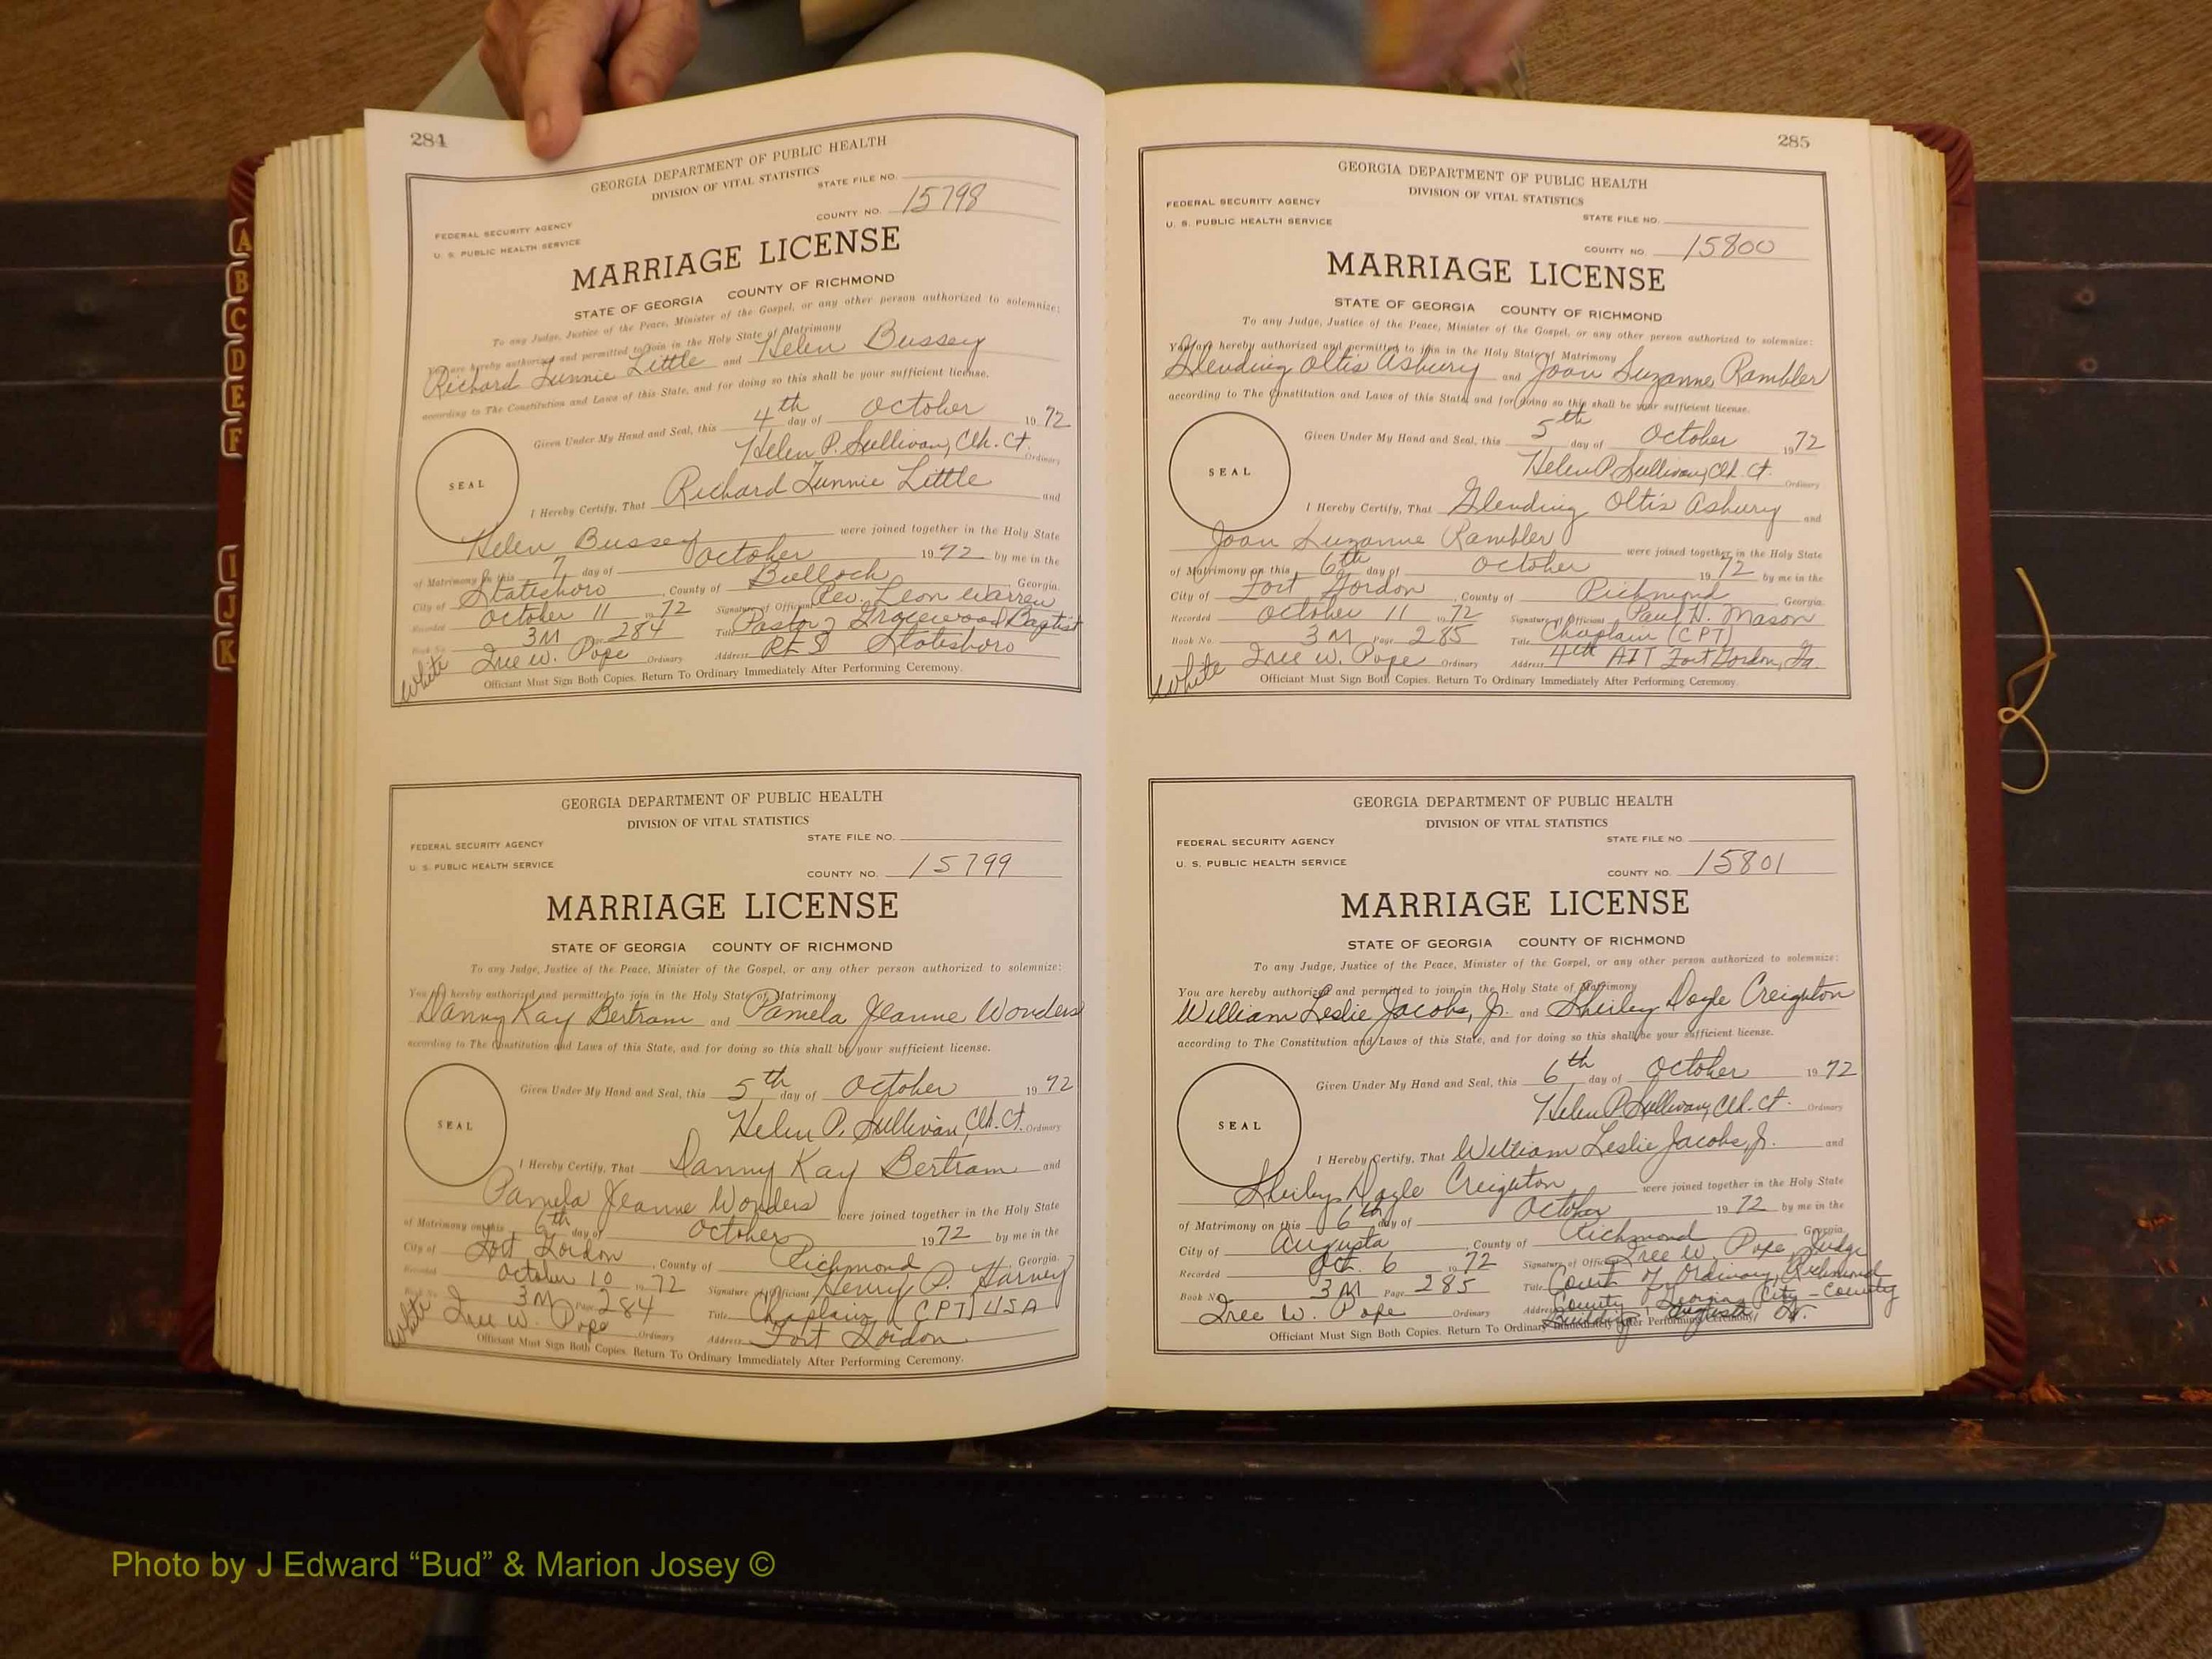 284
GEORGIA DEPARTMENT OF PUBLIC HEALTH
DIVISION OF VITAL STATISTICS
STATE FILE NO.
FEDERAL SECURITY AGENCY
U. S. PUBLIC HEALTH SERVICE
COUNTY NO. 15798
MARRIAGE LICENSE
STATE OF GEORGIA COUNTY OF RICHMOND
To any Judge, Justice of the Peace, Minister of the Gospel, or any other person authorized to solemnize:
You are hereby authorized and permitted to join in the Holy State of Matrimony
Richard Lunnie Little and Helen Bussey
according to The Constitution and Laws of this State, and for doing so this shall be your sufficient license.
Given Under My Hand and Seal, this 4th day of October 1972
Helen P. Sullivan, Clk. Ct. Ordinary
SEAL
I Hereby Certify, That Richard Lunnie Little and
Helen Bussey were joined together in the Holy State
of Matrimony on this 7 day of October 1972 by me in the
City of Statesboro, County of Bulloch, Georgia.
Recorded October 11 1972 Signature of Official Rev. Leon Warren
Book No. 3M Page 284 Title Pastor of Gracewood Baptist
Tree W. Pope Ordinary Address Rt 5 Statesboro
White
Officiant Must Sign Both Copies. Return To Ordinary Immediately After Performing Ceremony.
GEORGIA DEPARTMENT OF PUBLIC HEALTH
DIVISION OF VITAL STATISTICS
STATE FILE NO.
FEDERAL SECURITY AGENCY
U. S. PUBLIC HEALTH SERVICE
COUNTY NO. 15799
MARRIAGE LICENSE
STATE OF GEORGIA COUNTY OF RICHMOND
To any Judge, Justice of the Peace, Minister of the Gospel, or any other person authorized to solemnize:
You are hereby authorized and permitted to join in the Holy State of Matrimony
Danny Kay Bertram and Pamela Jeanne Wonders
according to The Constitution and Laws of this State, and for doing so this shall be your sufficient license.
Given Under My Hand and Seal, this 5th day of October 1972
Helen P. Sullivan, Clk. Ct. Ordinary
SEAL
I Hereby Certify, That Danny Kay Bertram and
Pamela Jeanne Wonders were joined together in the Holy State
of Matrimony on this 6th day of October 1972 by me in the
City of Fort Gordon, County of Richmond, Georgia.
Recorded October 10 1972 Signature of Officiant Henry P. Harvey
Book No. 3M Page 284 Title Chaplain (CPT) USA
Tree W. Pope Ordinary Address Fort Gordon
White
Officiant Must Sign Both Copies. Return To Ordinary Immediately After Performing Ceremony.
285
GEORGIA DEPARTMENT OF PUBLIC HEALTH
DIVISION OF VITAL STATISTICS
FEDERAL SECURITY AGENCY
U. S. PUBLIC HEALTH SERVICE
STATE FILE NO.
COUNTY NO. 15800
MARRIAGE LICENSE
STATE OF GEORGIA COUNTY OF RICHMOND
To any Judge, Justice of the Peace, Minister of the Gospel, or any other person authorized to solemnize:
You are hereby authorized and permitted to join in the Holy State of Matrimony
Glending Oltis Asbury and Joan Suzanne Rambler
according to The Constitution and Laws of this State, and for doing so this shall be your sufficient license.
Given Under My Hand and Seal, this 5th day of October 1972
Helen P. Sullivan, Clk. Ct. Ordinary
SEAL
I Hereby Certify, That Glending Oltis Asbury and
Joan Suzanne Rambler were joined together in the Holy State
of Matrimony on this 6th day of October 1972 by me in the
City of Fort Gordon, County of Richmond, Georgia.
Recorded October 11 1972 Signature of Officiant Paul H. Mason
Book No. 3M Page 285 Title Chaplain (CPT)
Tree W. Pope Ordinary Address 4th AIT Fort Gordon, Ga
White
Officiant Must Sign Both Copies. Return To Ordinary Immediately After Performing Ceremony.
GEORGIA DEPARTMENT OF PUBLIC HEALTH
DIVISION OF VITAL STATISTICS
STATE FILE NO.
FEDERAL SECURITY AGENCY
U. S. PUBLIC HEALTH SERVICE
COUNTY NO. 15801
MARRIAGE LICENSE
STATE OF GEORGIA COUNTY OF RICHMOND
To any Judge, Justice of the Peace, Minister of the Gospel, or any other person authorized to solemnize:
You are hereby authorized and permitted to join in the Holy State of Matrimony
William Leslie Jacobs, Jr. and Shirley Dayle Creighton
according to The Constitution and Laws of this State, and for doing so this shall be your sufficient license.
Given Under My Hand and Seal, this 6th day of October 1972
Helen P. Sullivan, Clk. Ct. Ordinary
SEAL
I Hereby Certify, That William Leslie Jacobs, Jr. and
Shirley Dayle Creighton were joined together in the Holy State
of Matrimony on this 6th day of October 1972 by me in the
City of Augusta, County of Richmond Georgia.
Recorded Oct. 6 1972 Signature of Officiant Tree W. Pope, Judge
Book No. 3M Page 285 Title Court of Ordinary, Richmond
Tree W. Pope Ordinary Address County, Georgia City-County
Building Augusta, Ga.
Officiant Must Sign Both Copies. Return To Ordinary Immediately After Performing Ceremony.
A
B
C
D
E
F
I
J
K
Photo by J Edward “Bud” & Marion Josey ©